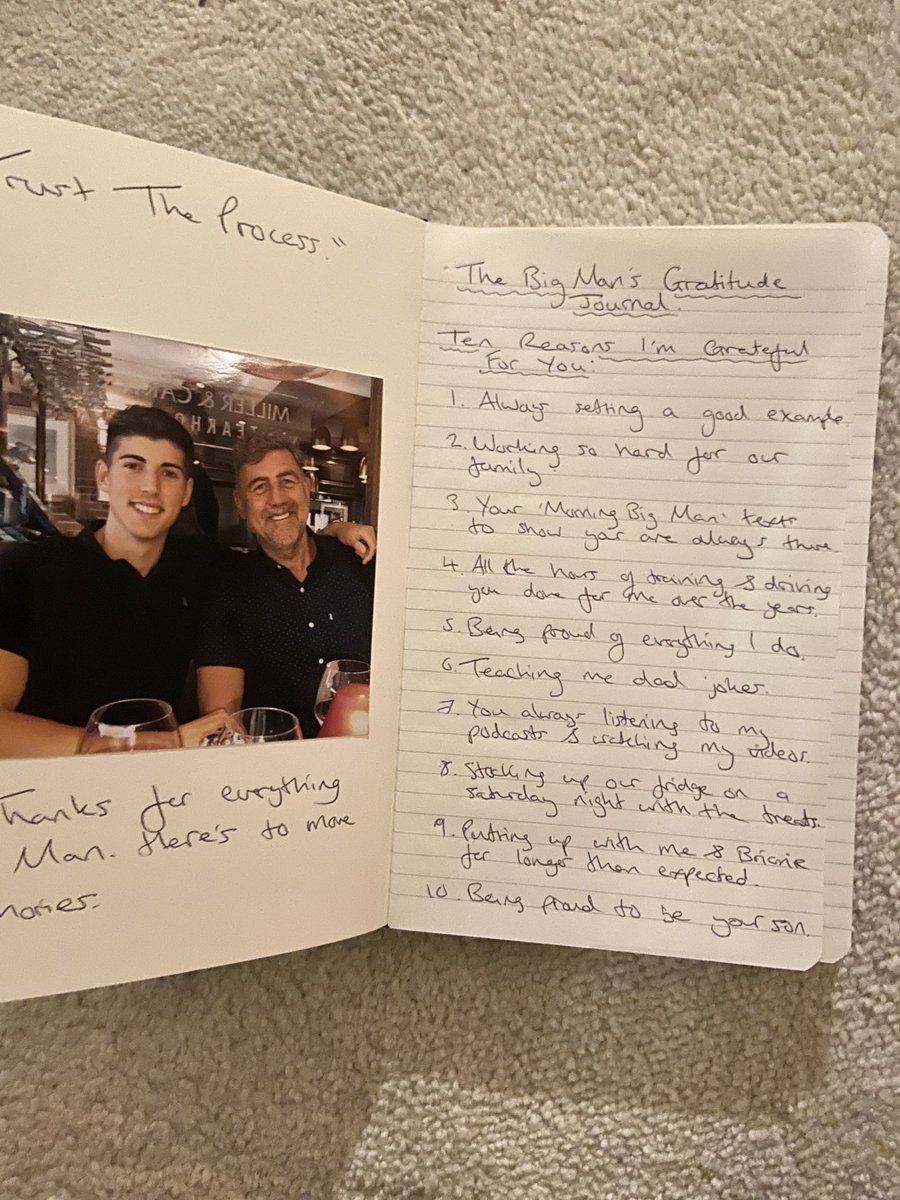 Trust The Process."
MILLER & CAR
STEAKH
Thanks for everything
Man. Here's to more
"The Big Man's Gratitude
Journal.
Ten Reasons I'm Grateful
For You:
1. Always setting a good example
2. Working so hard for our
family
3. Your 'Morning Big Man' texts
to show you are always there
4. All the hours of training & driving
you done for me over the years.
5. Being proud of everything I do.
6. Teaching me dad jokes.
7. You always listening to my
podcasts & watching my videos.
8. Stocking up our fridge on a
saturday night with the treats.
9. Putting up with me & Bricrie
for longer than expected.
10. Being proud to be your son.